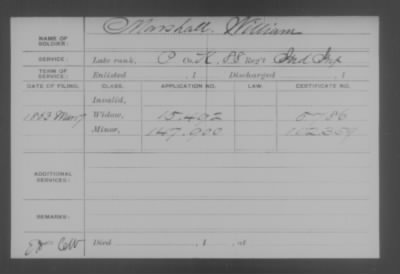 NAME OF SOLDIER: Marshall, William
SERVICE: Late rank, P Co. K, 88 Reg't Ind Inf
TERM OF SERVICE: Enlisted , 1 Discharged , 1
DATE OF FILING. CLASS. APPLICATION NO. LAW. CERTIFICATE NO.
Invalid,
1863 Widow, 15.402
Minor, 147.900 112359
ADDITIONAL SERVICES:
REMARKS:
Died , 1 , at